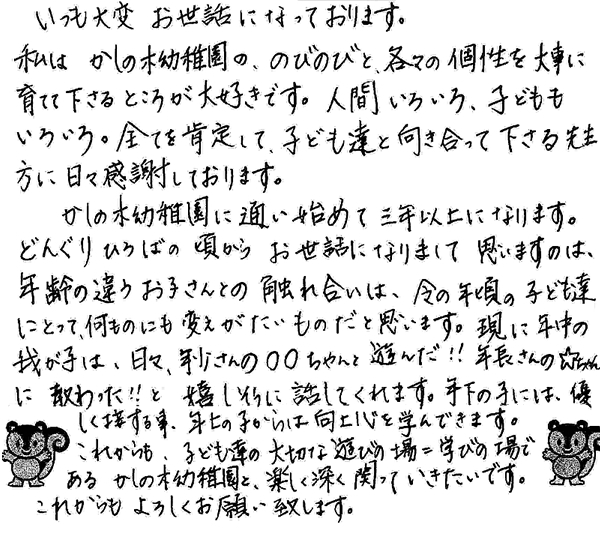 いつも大変 お世話になっております。
私は かしの木幼稚園の、のびのびと、各々の個性を大事に
育てて下さるところが大好きです。人間いろいろ、子どもも
いろいろ。全てを肯定して、子ども達と向き合って下さる先生
方に日々感謝しております。
かしの木幼稚園に通い始めて三年以上になります。
どんぐりひろばの頃から お世話になりまして 思いますのは、
年齢の違うお子さんとの触れ合いは、今の年頃の子ども達
にとって、何ものにも変えがたいものだと思います。現に年中の
我が子は、日々、年少さんの〇〇ちゃんと遊んだ!! 年長さんの☆ちゃん
に 教わった!!と 嬉しそうに話してくれます。年下の子には、優
しく接する事、年上の子からは向上心を学んできます。
これからも、子ども達の大切な遊びの場=学びの場で
ある かしの木幼稚園と、楽しく深く関っていきたいです。
これからも よろしくお願い致します。